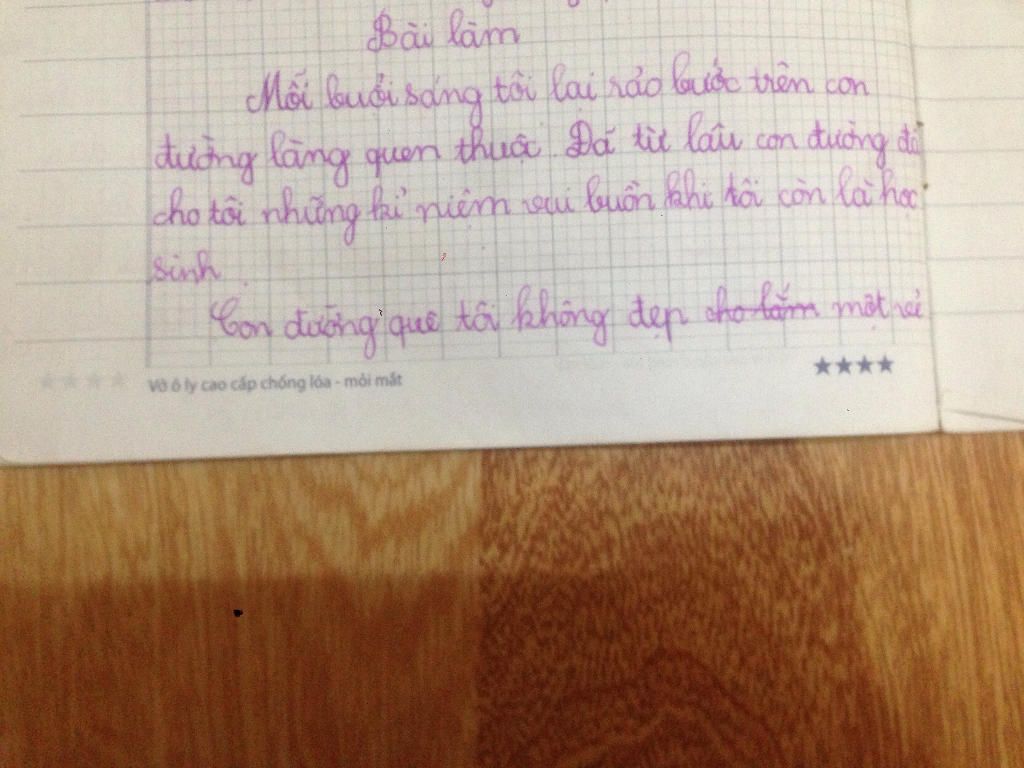 Bài làm
Mỗi buổi sáng tôi lại rảo bước trên con
đường làng quen thuộc. Đã từ lâu con đường đã
cho tôi những kỉ niệm vui buồn khi tôi còn là học
sinh.
Con đường quê tôi không đẹp cho lắm một
Vở ô ly cao cấp chống lóa - mỏi mắt